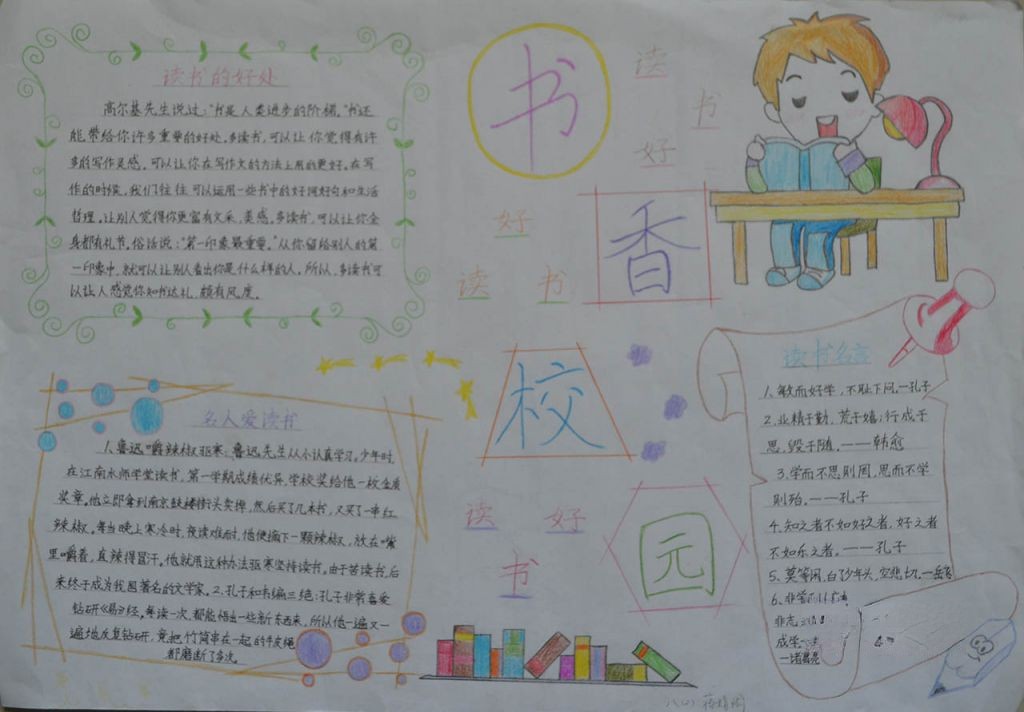 读书的好处
高尔基先生说过:"书是人类进步的阶梯。"书还
能带给你许多重要的好处。多读书,可以让你觉得有许
多的写作灵感。可以让你在写作文的方法上用的更好。在写
作的时候,我们往往可以运用一些书中的好词好句和生活
哲理。让别人觉得你更富有文采,美感。多读书,可以让你全
身都有礼节。俗话说:"第一印象最重要。"从你留给别人的第
一印象中,就可以让别人看出你是什么样的人。所以,多读书可
以让人感觉你知书达礼,颇有风度。
书
读
书
好
好
读 书
香
名人爱读书
1.鲁迅嚼辣椒驱寒:鲁迅先生从小认真学习。少年时,
在江南水师学堂读书,第一学期成绩优异,学校奖给他一枚金质
奖章。他立即拿到南京鼓楼街头卖掉,然后买了几本书,又买了一串红
辣椒。每当晚上寒冷时,夜读难耐,他便摘下一颗辣椒,放在嘴
里嚼着,直辣得冒汗。他就用这种办法驱寒坚持读书。由于苦读书,后
来终于成为我国著名的文学家。2.孔子和韦编三绝:孔子非常喜爱
钻研《易》经,每读一次,都能悟出一些新东西来,所以他一遍又一
遍地反复钻研,竟把竹简串在一起的牛皮绳
都磨断了多次。
校
读 好
书
园
读书名言
1.敏而好学,不耻下问。—孔子
2.业精于勤,荒于嬉;行成于
思,毁于随。——韩愈
3.学而不思则罔,思而不学
则殆。——孔子
4.知之者不如好之者,好之者
不如乐之者。——孔子
5.莫等闲,白了少年头,空悲切。—岳飞
6.非学
非志
成学
一诸葛亮
八